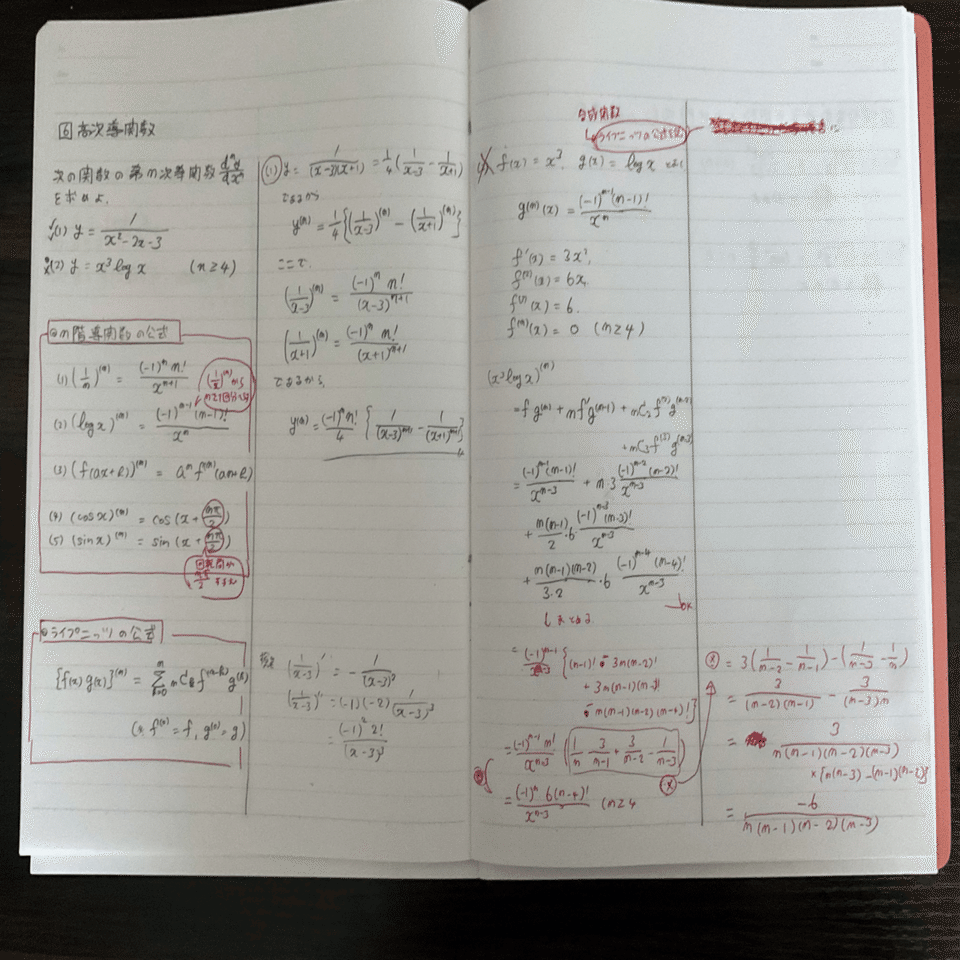 6 高次導関数
次の関数の第n次導関数 d^n y/dx^n
を求めよ.
(1) y = 1/(x²-2x-3)
(2) y = x³ log x (n≧4)
n階導関数の公式
(1) (1/x)^(n) = (-1)^n n!/x^(n+1)
(2) (log x)^(n) = (-1)^(n-1) (n-1)!/x^n
(3) (f(ax+b))^(n) = a^n f^(n)(ax+b)
(4) (cos x)^(n) = cos(x + nπ/2)
(5) (sin x)^(n) = sin(x + nπ/2)
ライプニッツの公式
{f(x) g(x)}^(n) = Σ_{k=0}^{n} nCk f^(n-k) g^(k)
f^(0) = f, g^(0) = g)
(1) y = 1/((x-3)(x+1)) = 1/4 (1/(x-3) - 1/(x+1))
であるから
y^(n) = 1/4 {(1/(x-3))^(n) - (1/(x+1))^(n)}
ここで.
(1/(x-3))^(n) = (-1)^n n!/(x-3)^(n+1)
(1/(x+1))^(n) = (-1)^n n!/(x+1)^(n+1)
であるから
y^(n) = (-1)^n n!/4 {1/(x-3)^(n+1) - 1/(x+1)^(n+1)}
(1/(x-3))' = -1/(x-3)²
(1/(x-3))'' = (-1)(-2) 1/(x-3)³
= (-1)² 2!/(x-3)³
合成関数
ライプニッツの公式
f(x) = x³, g(x) = log x
g^(n)(x) = (-1)^(n-1) (n-1)!/x^n
f'(x) = 3x²,
f^(2)(x) = 6x,
f^(3)(x) = 6.
f^(n)(x) = 0 (n≧4)
(x³ log x)^(n)
= f g^(n) + n f' g^(n-1) + nC2 f^(2) g^(n-2)
+ nC3 f^(3) g^(n-3)
= (-1)^(n-1) (n-1)!/x^(n-3) + n・3 (-1)^(n-2) (n-2)!/x^(n-3)
+ n(n-1)/2・6・(-1)^(n-3) (n-3)!/x^(n-3)
+ n(n-1)(n-2)/3・2・6 (-1)^(n-4) (n-4)!/x^(n-3)
= (-1)^(n-1)/x^(n-3) {(n-1)! - 3n(n-2)!
+ 3n(n-1)(n-3)!
- n(n-1)(n-2)(n-4)!}
= (-1)^(n-1) n!/x^(n-3) (1/n - 3/(n-1) + 3/(n-2) - 1/(n-3))
= (-1)^n 6(n-4)!/x^(n-3) (n≧4
= 3(1/(n-2) - 1/(n-1)) - (1/(n-3) - 1/n)
= 3/((n-2)(n-1)) - 3/((n-3)n)
= 3/(n(n-1)(n-2)(n-3))
×{n(n-3) - (n-1)(n-2)}
= -6/(n(n-1)(n-2)(n-3))